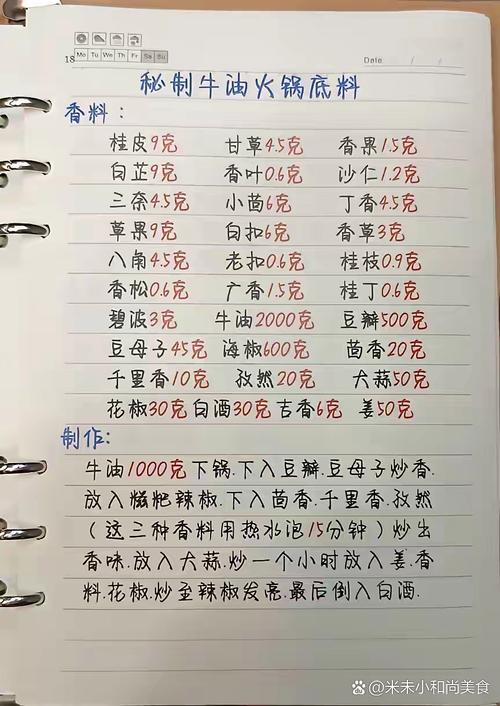 18 Mo Tu We Th Fr Sa Su
Date / /
秘制牛油火锅底料
香料：
桂皮9克 甘草4.5克 香果1.5克
白芷9克 香叶0.6克 沙仁1.2克
三奈4.5克 小茴6克 丁香4.5克
草果9克 白扣6克 香草3克
八角4.5克 老扣0.6克 桂枝0.9克
香松0.6克 广香1.5克 桂丁0.6克
碧波3克 牛油2000克 豆瓣500克
豆母子45克 海椒600克 茴香20克
千里香10克 孜然20克 大蒜50克
花椒30克 白酒30克 吉香6克 姜50克
制作:
牛油1000克下锅.下入豆瓣.豆母子炒香.
放入糍粑辣椒.下入茴香.千里香.孜然
(这三种香料用热水泡15分钟)炒出
香味.放入大蒜.炒一个小时放入姜.香
料.花椒.炒至辣椒发亮.最后倒入白酒.
@米未小和尚美食